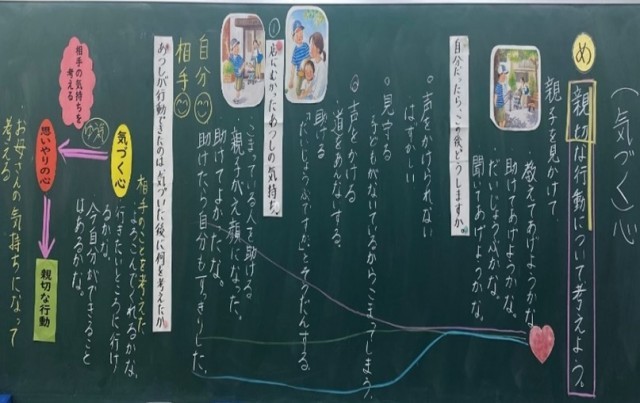 (気づく)心
め
親切な行動について考えよう。
親子を見かけて
教えてあげようかな。
助けてあげようかな。
だいじょうぶかな。
聞いてあげようかな。
自分だったら、この後、どうしますか。
声をかけられない
はずかしい
見守る
子どもがないているからこまってしまう。
声をかける
道をあんないする。
助ける
「だいじょうぶですか」とそうだんする。
①
店にむかったあつしの気持ち。
こまっている人を助ける
親子がえ顔になった。
助けてよかったな。
助けたら自分もすっきりした。
自分
相手
あつしが行動できたのは、気づいた後に何を考えたか。
相手のことを考えた
よろこんでくれるかな。
行きたいところに行けるかな。
今自分ができることはあるかな。
気づく心
ゆう気
相手の気持ちを考える
思いやりの心
親切な行動
お母さんの気持ちになって考える